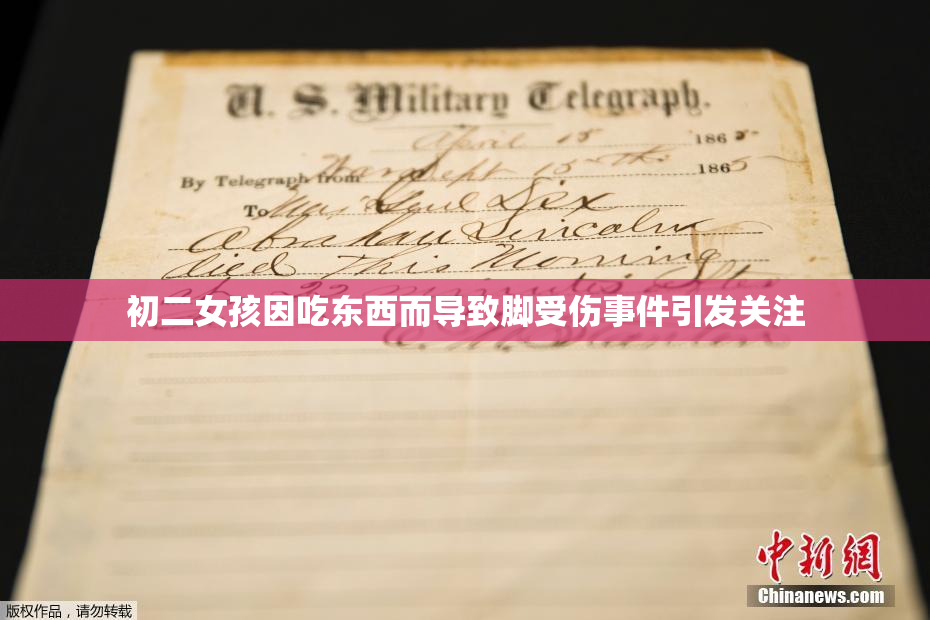 U. S. Military Telegraph.
April 15 1865
By Telegraph from War Dept 15th 1865
To Maj Genl Dix
Abraham Lincoln
died This Morning
at 22 minutes after
初二女孩因吃东西而导致脚受伤事件引发关注
E. M. Stanton
中新网
Chinanews.com
版权作品，请勿转载